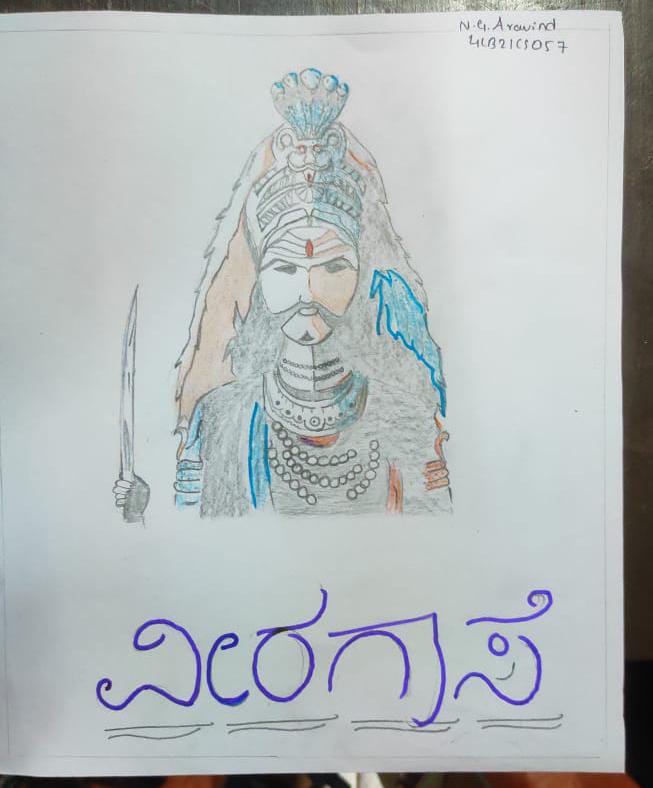 N.G. Aravind
4LB21CS057
ವೀರಗಾಸೆ